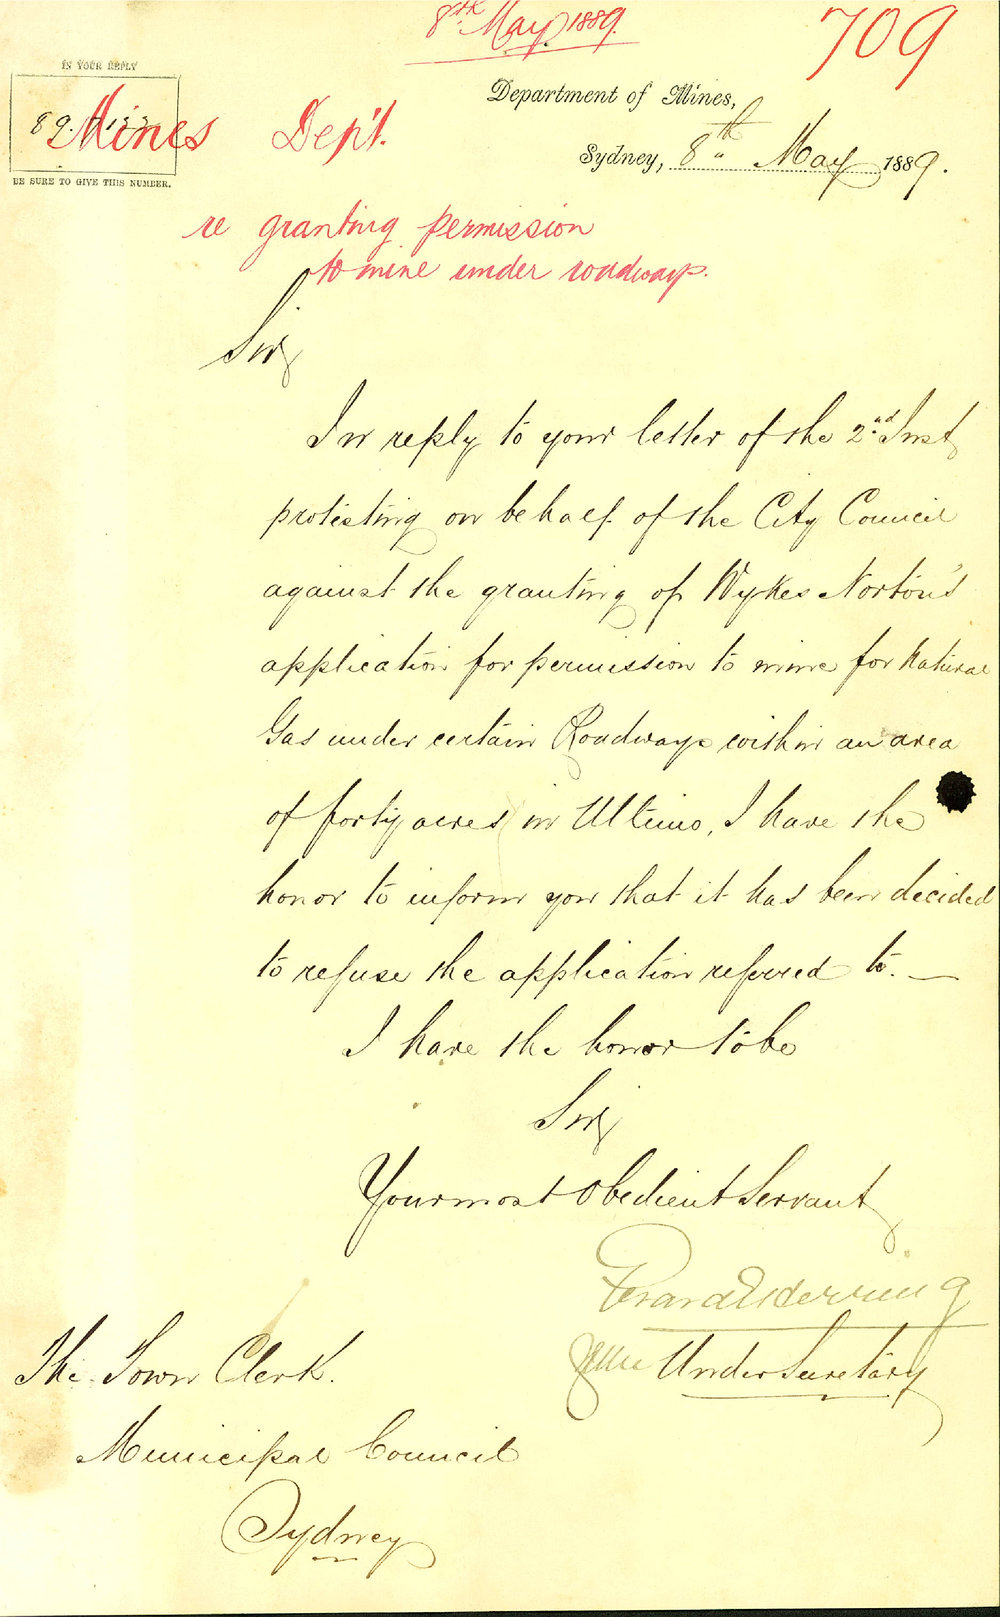 8th May 1889.
709
IN YOUR REPLY
89.
BE SURE TO GIVE THIS NUMBER.
Mines Dep't.
Department of Mines,
Sydney, 8th May 1889.
re granting permission
to mine under roadways.
Sir,
In reply to your letter of the 2nd Inst
protesting on behalf of the City Council
against the granting of Wykes Norton's
application for permission to mine for Natural
Gas under certain Roadways within an area
of forty acres in Ultimo, I have the
honor to inform you that it has been decided
to refuse the application referred to. —
I have the honor to be
Sir,
Your most Obedient Servant
Under Secretary
The Town Clerk.
Municipal Council
Sydney